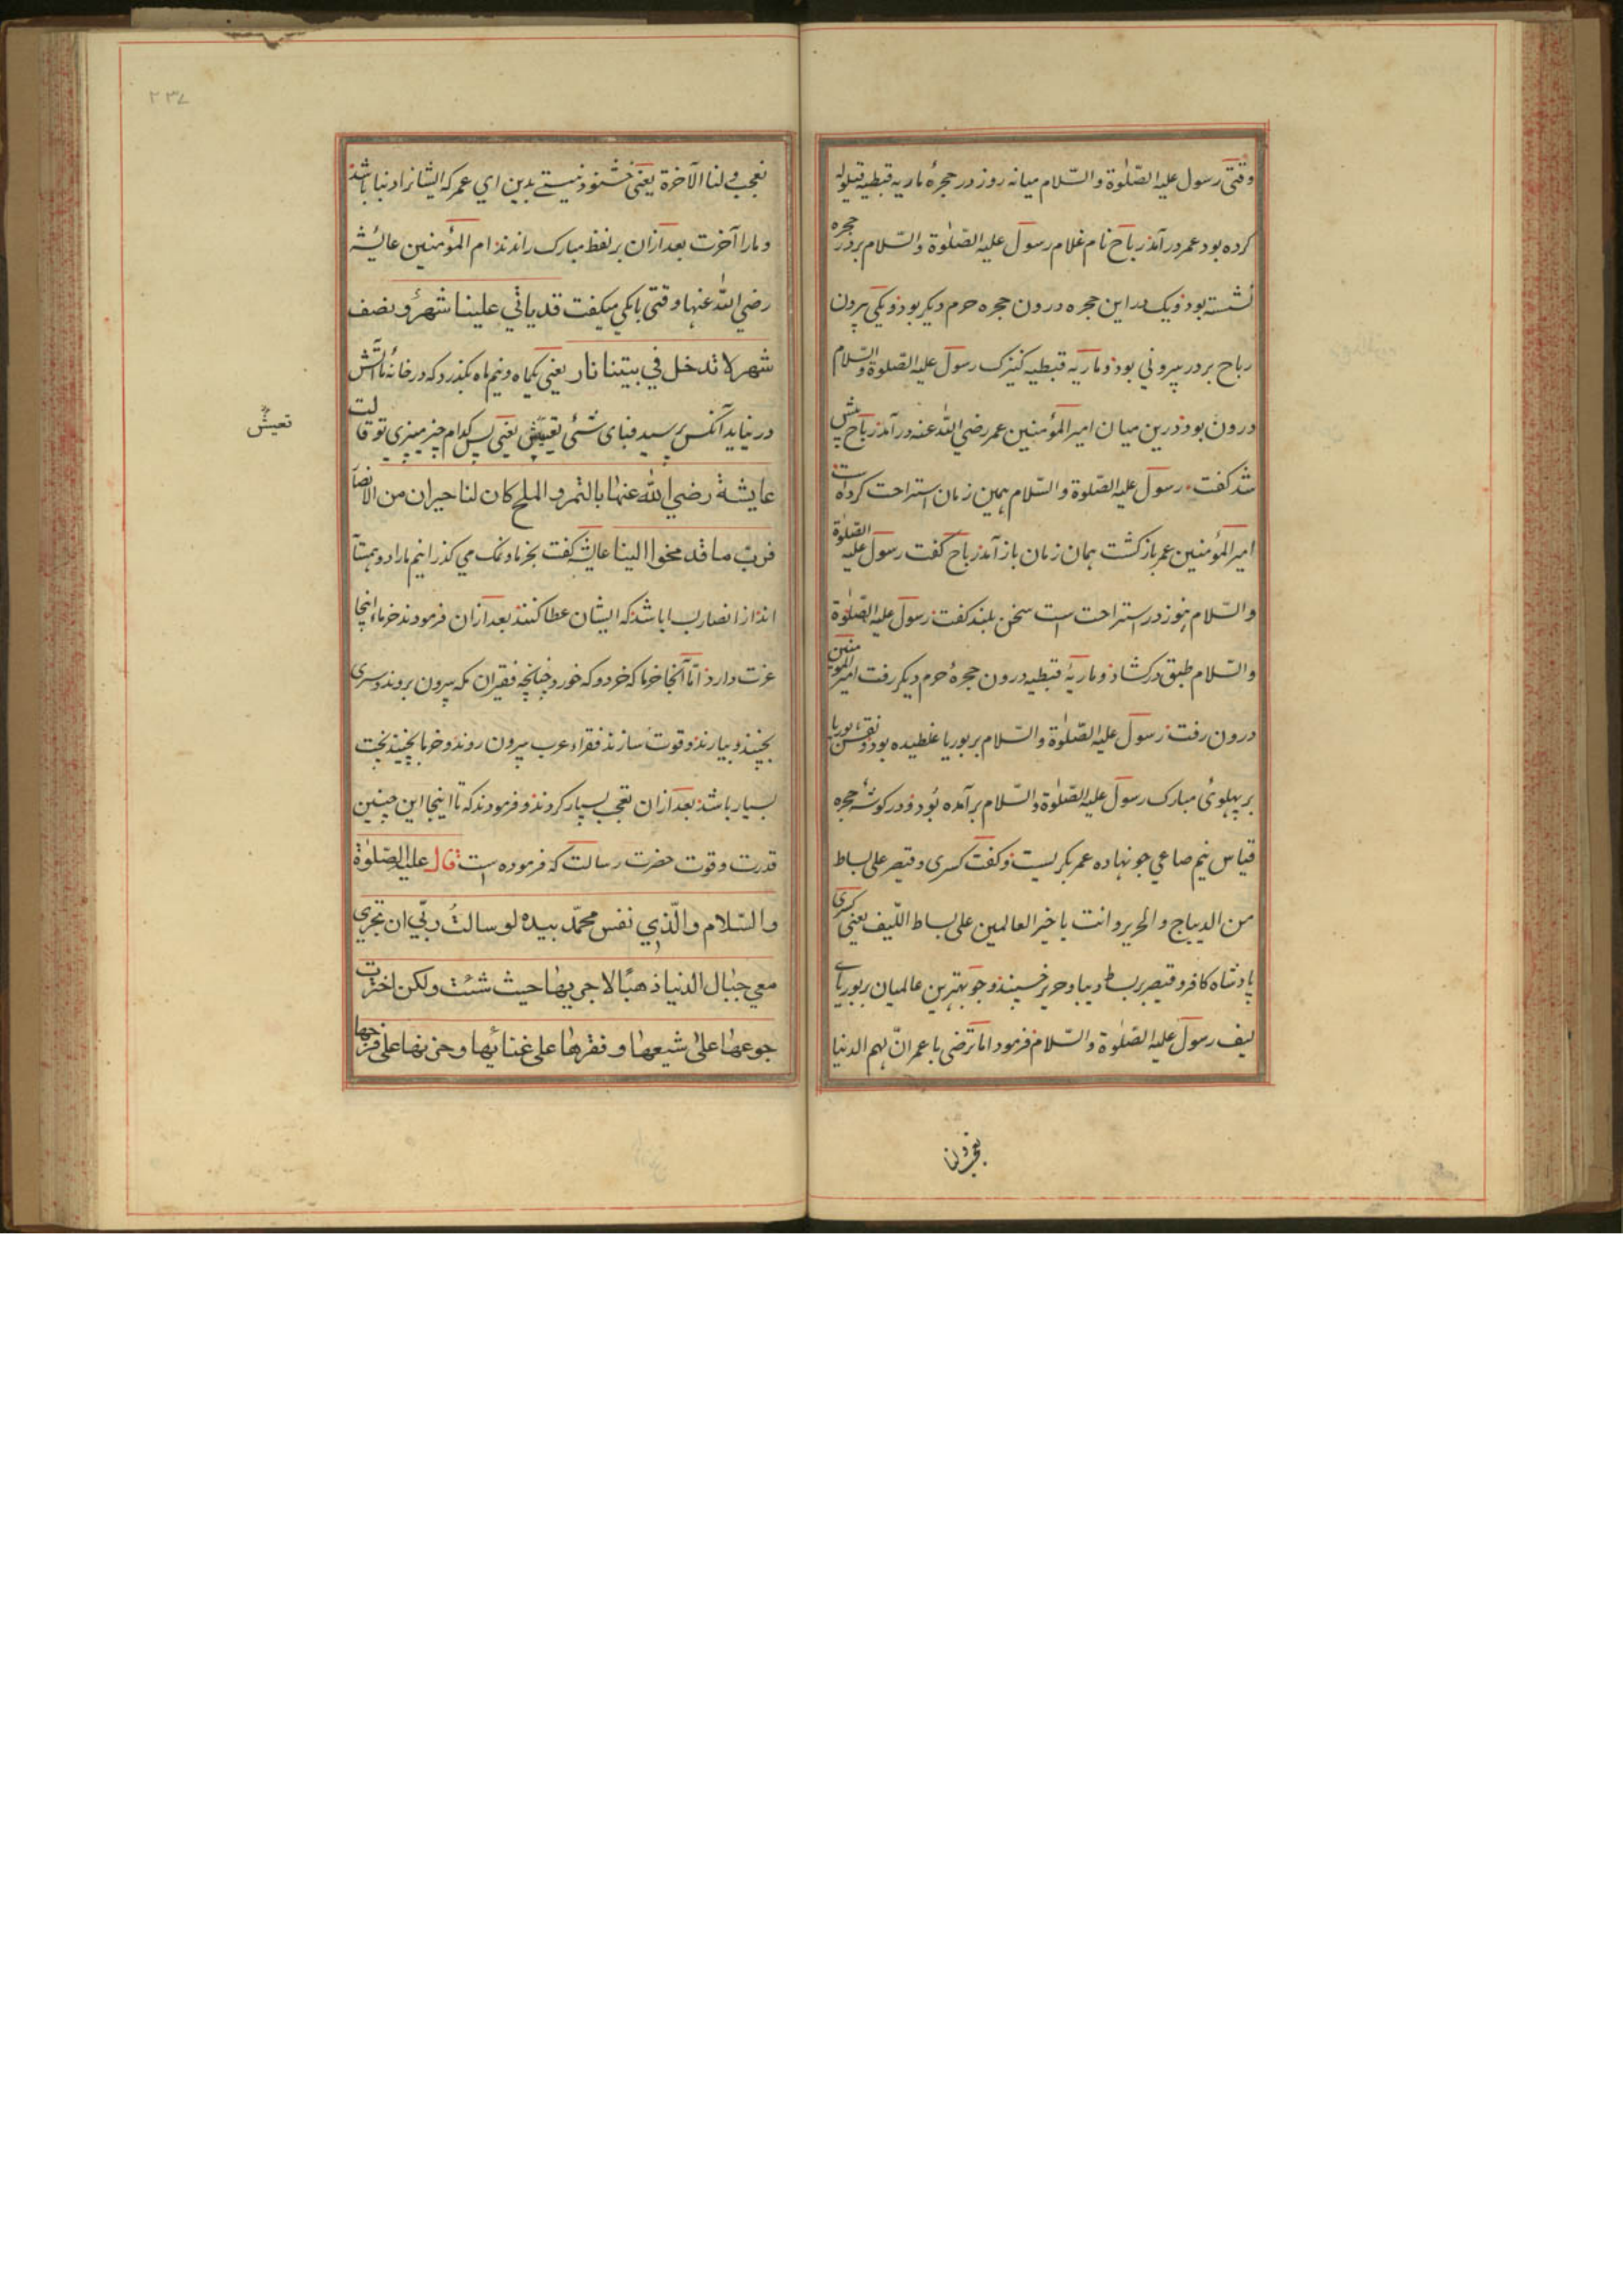 وقتی رسول علیه الصّلوٰة والسّلام میانه روز در حجرهٔ ماریه قبطیه قیلوله
کرده بود عمر در آمذ رباح نام غلام رسول علیه الصّلوٰة والسّلام بر در حجره
نشسته بوذ و یک در این حجره درون حجره حرم دیکر بوذ و یکی بیرون
رباح بر در بیرونی بوذ و ماریه قبطیه کنیزک رسول علیه الصّلوة والسّلام
درون بوذ درین میان امیر المؤمنین عمر رضی اللّٰه عنه در آمذ رباح پیش
شذ کفت رسول علیه الصّلوة والسّلام همین زمان استراحت کرده است
امیر المؤمنین عمر باز کشت همان زمان باز آمذ رباح کفت رسول علیه الصّلوٰة
والسّلام هنوز در استراحت است سخن بلند کفت رسول علیه الصّلوٰة
والسّلام طبق در کشاذ و ماریهٔ قبطیه درون حجرهٔ حرم دیکر رفت امیر المؤمنین
درون رفت رسول علیه الصّلوٰة والسّلام بر بوریا غلطیده بود و نقش بوریا
بر پهلوئ مبارک رسول علیه الصّلوٰة والسّلام بر آمده بُود و در کوشهٔ حجره
قیاس نیم صاعی جو نهاده عمر بکریست و کفت کسری و قیصر علی بساط
من الدیباج والحریر وانت یا خیر العالمین علی بساط اللّیف یعنی کسری
پادشاه کافر و قیصر بر بسط دیبا و حریر خسپند و جو بهترین عالمیان بر بوریاے
لیف رسول علیه الصّلوٰة والسّلام فرمود اما ترضی یا عمر انّ لهم الدنیا
ولنا
۲۳۷
ولنا الآخرة یعنی خشنوذ نیستے بدین ای عمر که ایشانرا دنیا باشذ
و مارا آخرت بعد ازان بر لفظ مبارک راندند ام المؤمنین عائشه
رضی اللّٰه عنها وقتی با یکی میکفت قد یاتی علینا شهرٌ و نصف
شهر لا تدخل فی بیتنا نار یعنی یکماه و نیم ماه بکذرد که در خانهٔ ما آتش
در نیاید آنکس پرسید فبای شئی تعیش یعنی پس کدام چیز میپزی تو قالت
تعیش
عایشة رضی اللّٰه عنها بالتمر و الملح کان لنا جیران من الانصار
عایشه کفت بخرما و نمک می کذرانیم مارا دو همسآ
اند از انصار باشذ که ایشان عطا کنند بعد ازان فرمودند خرما اینجا
عزت دارد امّا آنجا خرما که خرد و که خورد چنانچه فقیران مکه بیرون بروند و سری
بچینند و بیارند و قوت سازند فقراء عرب بیرون روند و خرما بچینند بخت
بسیار باشذ بعد ازان تعجب بسیار کردند و فرمودند که تا اینجا این چنین
قدرت و قوت حضرت رسالت که فرموده است قال علیه الصّلوٰة
والسّلام والّذی نفس محمّد بیده لو سالتُ ربّی ان تجری
معی جبال الدنیا ذهبًا لاجریها حیث شئت ولکن اخترت
جوعها علی شبعها و فقرها علی غنائها و حزنها علی فرحها